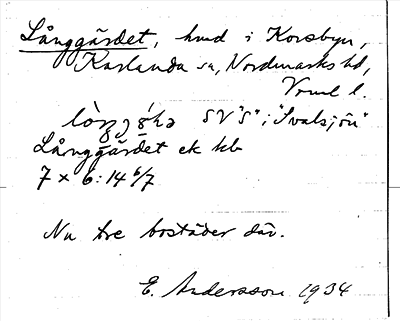 Långgärdet, hmd i Korsbyn,
Karlanda sn, Nordmarks hd,
Vrml l.
SV "S" i "Svalsjön"
Långgärdet ek kb
7 × 6:14 6/7
Nu tre bostäder där.
E. Andersson 1934